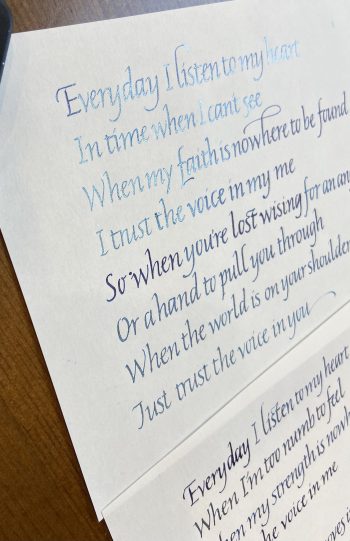 Everyday I listen to my heart
In time when I can't see
When my faith is nowhere to be found
I trust the voice in my me
So when you're lost wising for an an
Or a hand to pull you through
When the world is on your shoulder
Just trust the voice in you
Everyday I listen to my heart
When I'm too numb to feel
hen my strength is now
he voice in me